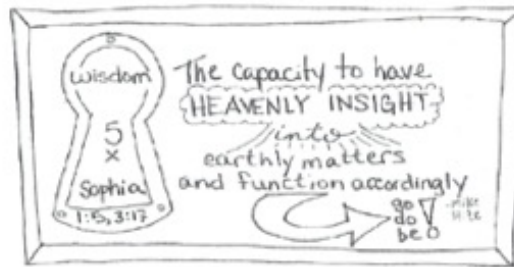 wisdom
5
x
Sophia
1:5, 3:17
The capacity to have
HEAVENLY INSIGHT
into
earthly matters
and function accordingly
go
do
be
mike